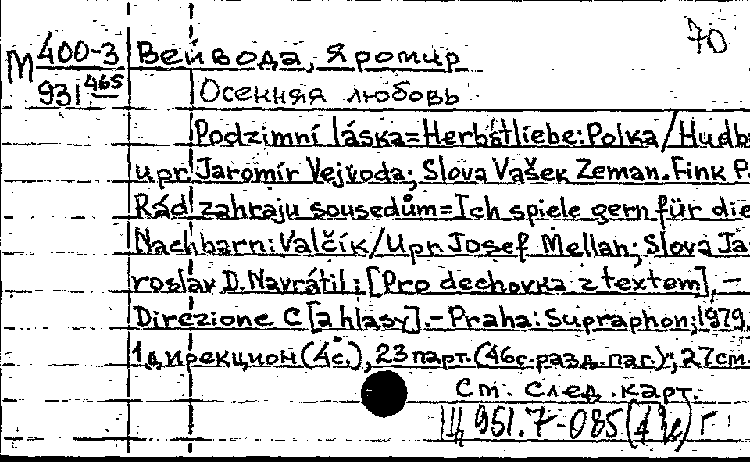 70
М 400-3 Вейвода, Яромир
931 465 Осенняя любовь
Podzimní láska=Herbstliebe:Polka/Hudb
upr. Jaromír Vejvoda; Slova Vašek Zeman. Fink P.
Rád zahraju sousedům=Ich spiele gern für die
Nachbarn:Valčík/Upr. Josef Mellan; Slova Ja
roslav D. Navrátil: [Pro dechovka z textem].-
Direzione C [a hlasy].-Praha:Supraphon,1979.
1 дирекцион(4с.), 23 парт.(46с.разд.паг.); 27см.
Ст. след. карт.
951.7-085